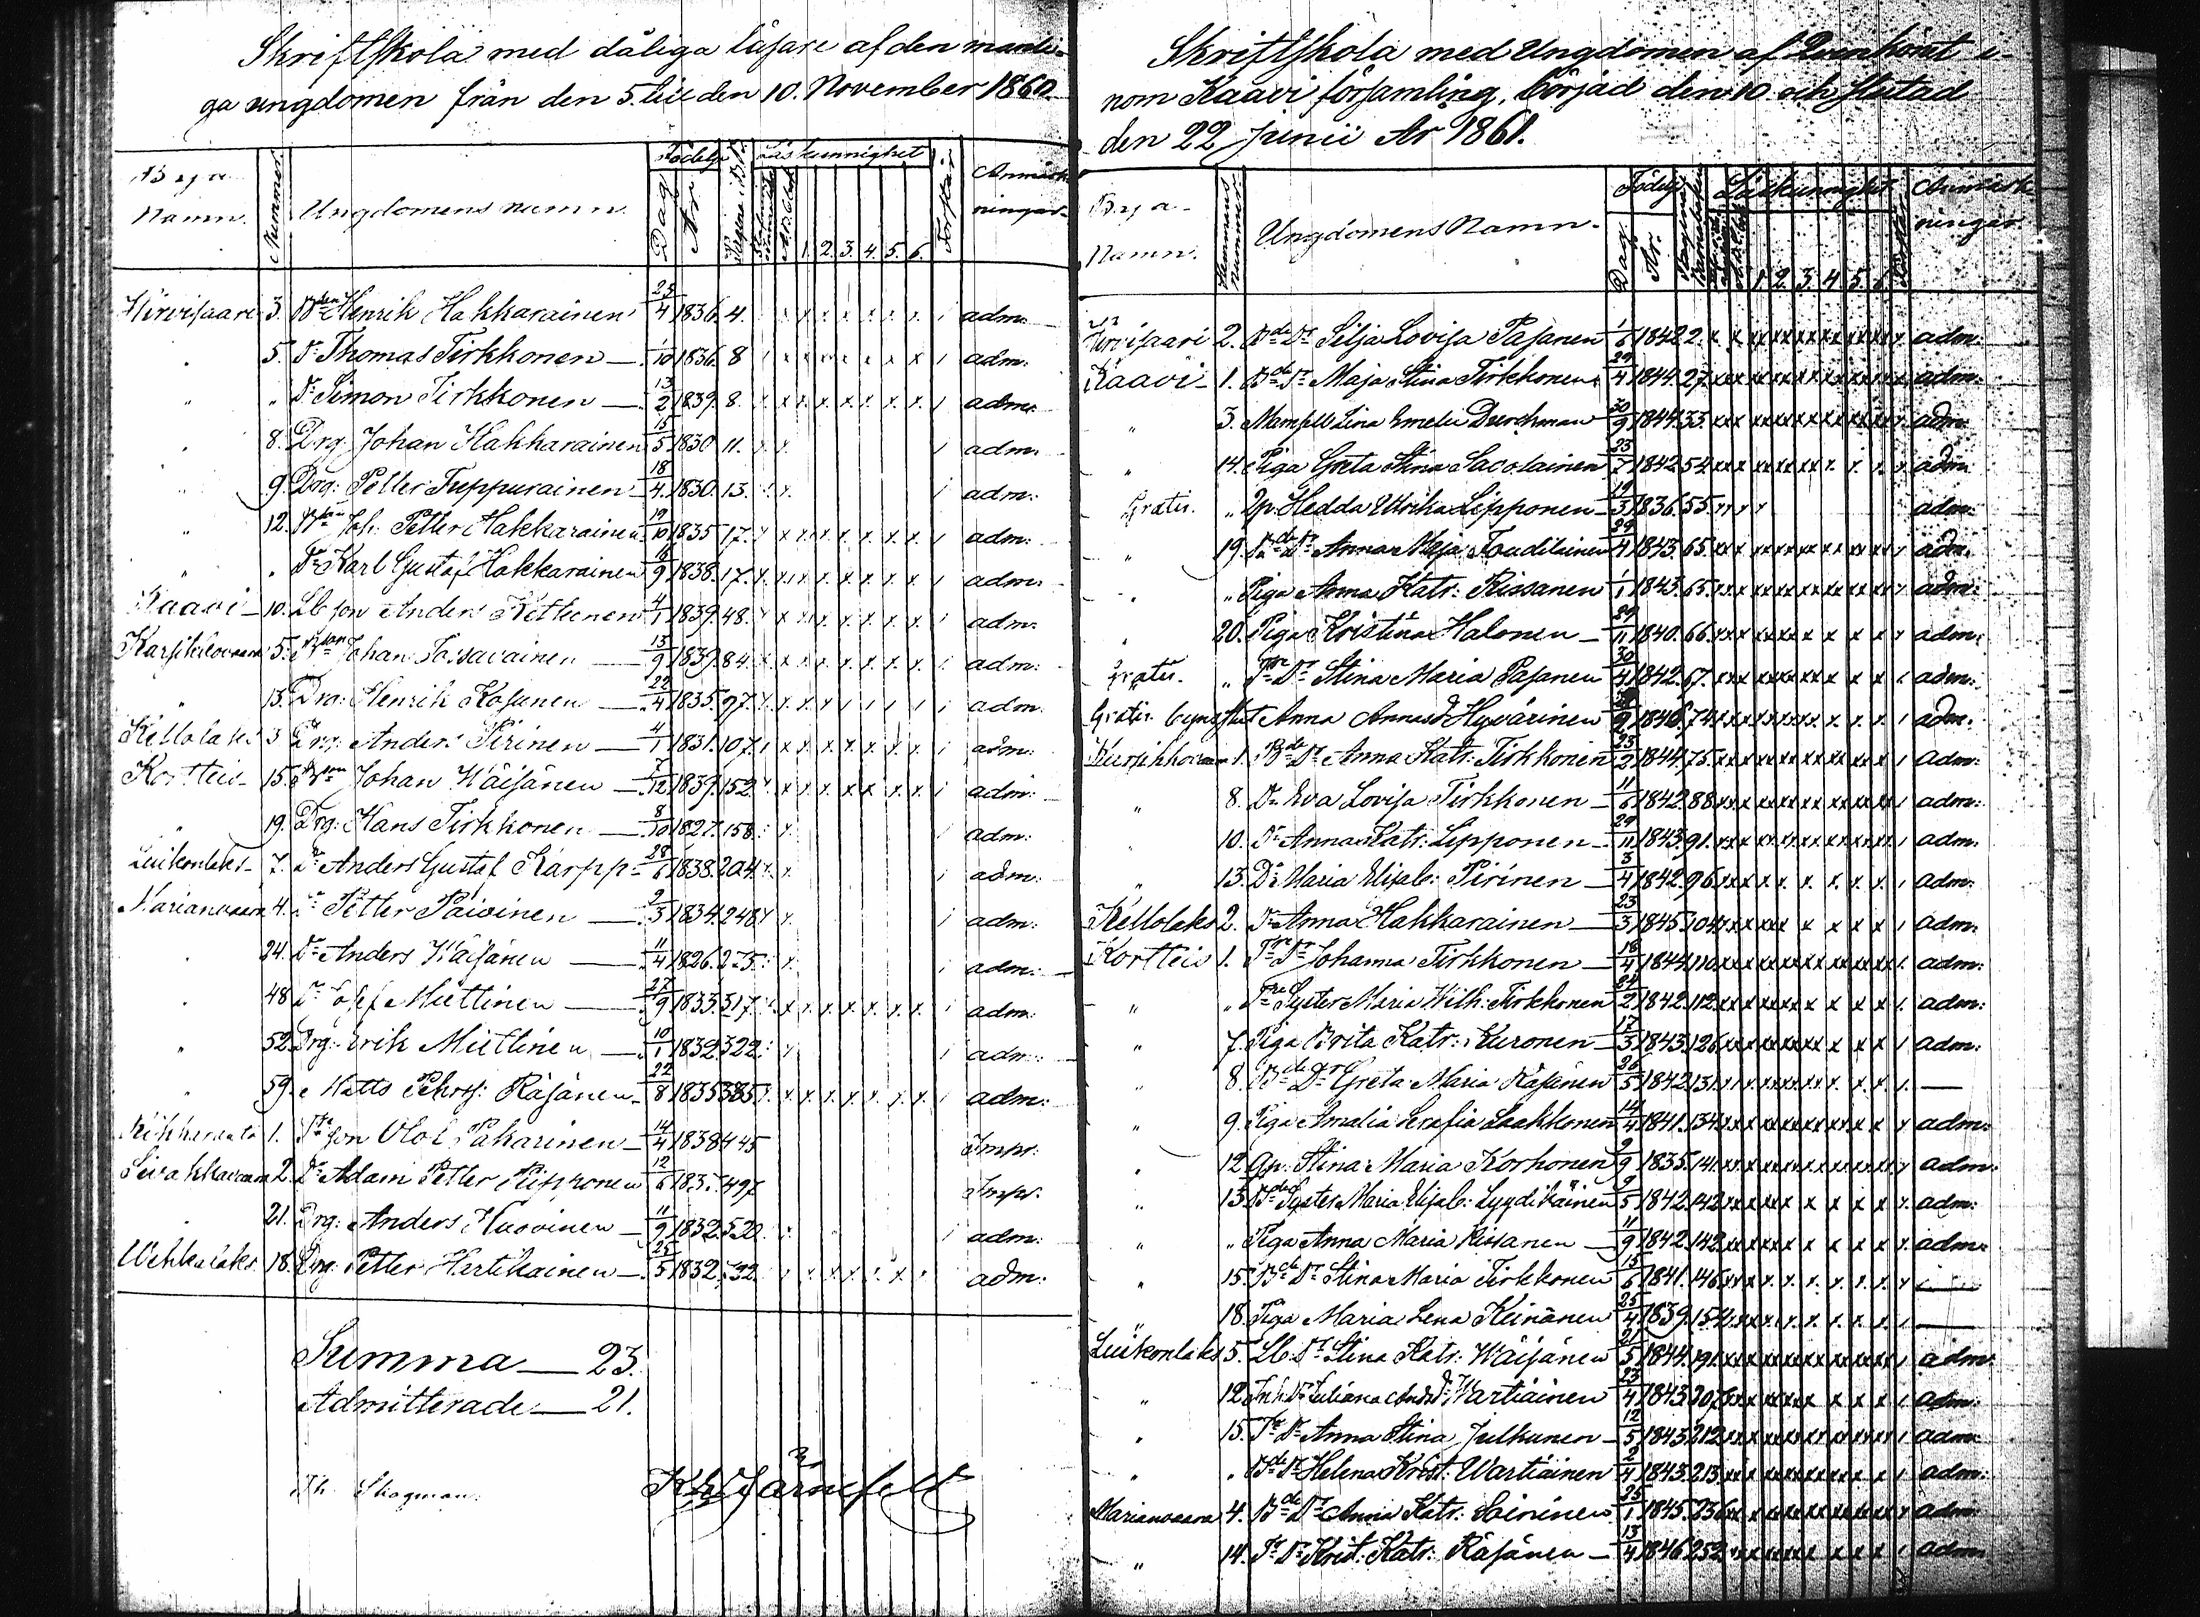 Skriftskola med dåliga läsare af den manli-
ga ungdomen från den 5. till den 10. November 1860.
Bya Namn. Nummer Ungdomens namn. Födelse Dag. År. Läskunnighet A.B.C.bok 1. 2. 3. 4. 5. 6. Förstår. Anmärkningar.
Hirvisaari 3. Henrik Hakkarainen 25/4 1836. 4. adm:
" 5. Dr Thomas Tirkkonen — 1/10 1836. 8 adm:
" " Dr Simon Tirkkonen — 13/2 1839. 8. adm:
" 8. Drg: Johan Hakkarainen 15/5 1830 11. adm:
" 9. Drg: Petter Tuppurainen 18/4 1830. 13. adm:
" 12. Joh: Petter Hakkarainen 19/10 1835 17. adm:
" " Dr Karl Gustaf Hakkarainen 16/9 1838. 17. adm:
Kaavi — 10. Lb son Anders Kettunen 4/1 1839. 48. adm:
5. Johan Toisavainen — 13/9 1839. 84. adm:
" 13. Drg: Henrik Kosunen — 22/4 1835. 97. adm:
Kellolaks 3 Drg: Anders Pirinen — 4/1 1831. 107. adm:
Kortteis 15. Johan Wäisänen — 7/12 1839. 152. adm:
" 19. Drg: Hans Tirkkonen — 8/10 1827. 158. adm:
Luikonlaks 7. Dr Anders Gustaf Karpp 28/6 1838. 204. adm:
Marianvaara 4. Dr Petter Päivinen — 9/3 1834. 248. adm:
" 24. Dr Anders Wäisänen — 11/4 1826. adm:
" 48 Dr Josef Miettinen — 27/9 1833. 317. adm:
" 52. Drg: Erik Miettinen — 10/1 1832. 322. adm:
" 59. Matts Räsänen 22/8 1835 385. adm:
1. son Olof Pakarinen — 14/4 1838 445 Impr:
Sivakkavaara 2. Dr Adam Petter 12/6 497 Impr:
" 21. Drg: Anders Huovinen — 11/9 1832. 520. adm:
Wehkalaks 18. Drg: Petter Hertikainen — 25/5 1832. adm:
Summa — 23.
Admitterade — 21.
Skogman.
Järnefelt
Skriftskola med Ungdomen af Qvinkönet i-
nom Kaavi församling, börjad den 10 och slutad
den 22 Junii År 1861.
Bya Namn. Hemmans nummer. Ungdomens Namn. Födelse Dag. År. Läskunnighet 1 2. 3. 4 5. 6. Förstår. Anmärkningar.
Hirvisaari 2. Bde Dr Silja Lovisa Pasanen 1/6 1842. 2. adm:
Kaavi 1. Bde Dr Maja Stina Tirkkonen 29/4 1844. 27. adm:
" 3. Mamsell Lina Emelie Durchman 30/9 1844. 33. adm:
" 14. Piga Greta Stina Savolainen 23/7 1842. 54. adm:
Gratis. " Qp. Hedda Ulrika Lipponen 19/3 1836. 55. adm:
" 19. Bde Dr Anna Maja 29/4 1843. 65. adm:
" " Piga Anna Katr: Rissanen 1/1 1843. 65. adm:
" 20. Piga Kristina Halonen — 29/11 1840. 66. adm:
Gratis. " Dr Stina Maria Pasanen 30/4 1842. 67. adm:
Gratis. Anna Andersd Hyvärinen 9 1846. 74. adm:
1. Bde Dr Anna Katr: Tirkkonen 23/2 1844. 75. adm:
" 8. Dr Eva Lovisa Tirkkonen — 11/6 1842. 88. adm:
" 10. Dr Anna Katr: Lipponen — 29/11 1843. 91. adm:
" 13. Dr Maria Elisab: Pirinen — 3/4 1842. 96. adm:
Kellolaks 2. Dr Anna Hakkarainen — 23/3 1845. 104. adm:
Kortteis 1. Dr Johanna Tirkkonen — 18/4 1844. 110. adm:
" " Syster Maria Wilh: Tirkkonen 24/2 1842. 112. adm:
" 7. Piga Brita Katr: Kuronen — 17/3 1843. 126. adm:
" 8. Bde Dr Greta Maria Räsänen 26/5 1842. 131. —
" 9. Piga Amalia Serafia Laakkonen 14/4 1841. 134. adm:
" 12. Qp. Stina Maria Korhonen 9/9 1835. 141. adm:
" 13. Syster Maria Elisab: Lyydikäinen 9/5 1842. 142. adm:
" " Piga Anna Maria Rissanen — 11/9 1842. 142. adm:
" 15. Bde Dr Stina Maria Tirkkonen 15/6 1841. 146. —
" 18. Piga Maria Lena Keinänen 25/4 1839. 154. —
Luikonlaks 5. Lb. Dr Stina Katr: Wäisänen 21/5 1844. 191. adm:
" 12. Inh. Dr Juliana Andrsdr Wartiainen 23/4 1843. 207. adm:
" 15. Dr Anna Stina Julkunen — 12/5 1843. 212. adm:
" " Bde Dr Helena Krist: Wartiainen 2/4 1843. 213. adm:
Marianvaara 4. Bde Dr Anna Katr: Soininen 25/1 1845. 236. adm:
" 14. Dr Krist: Katr: Räsänen — 13/4 1846. 252. adm: